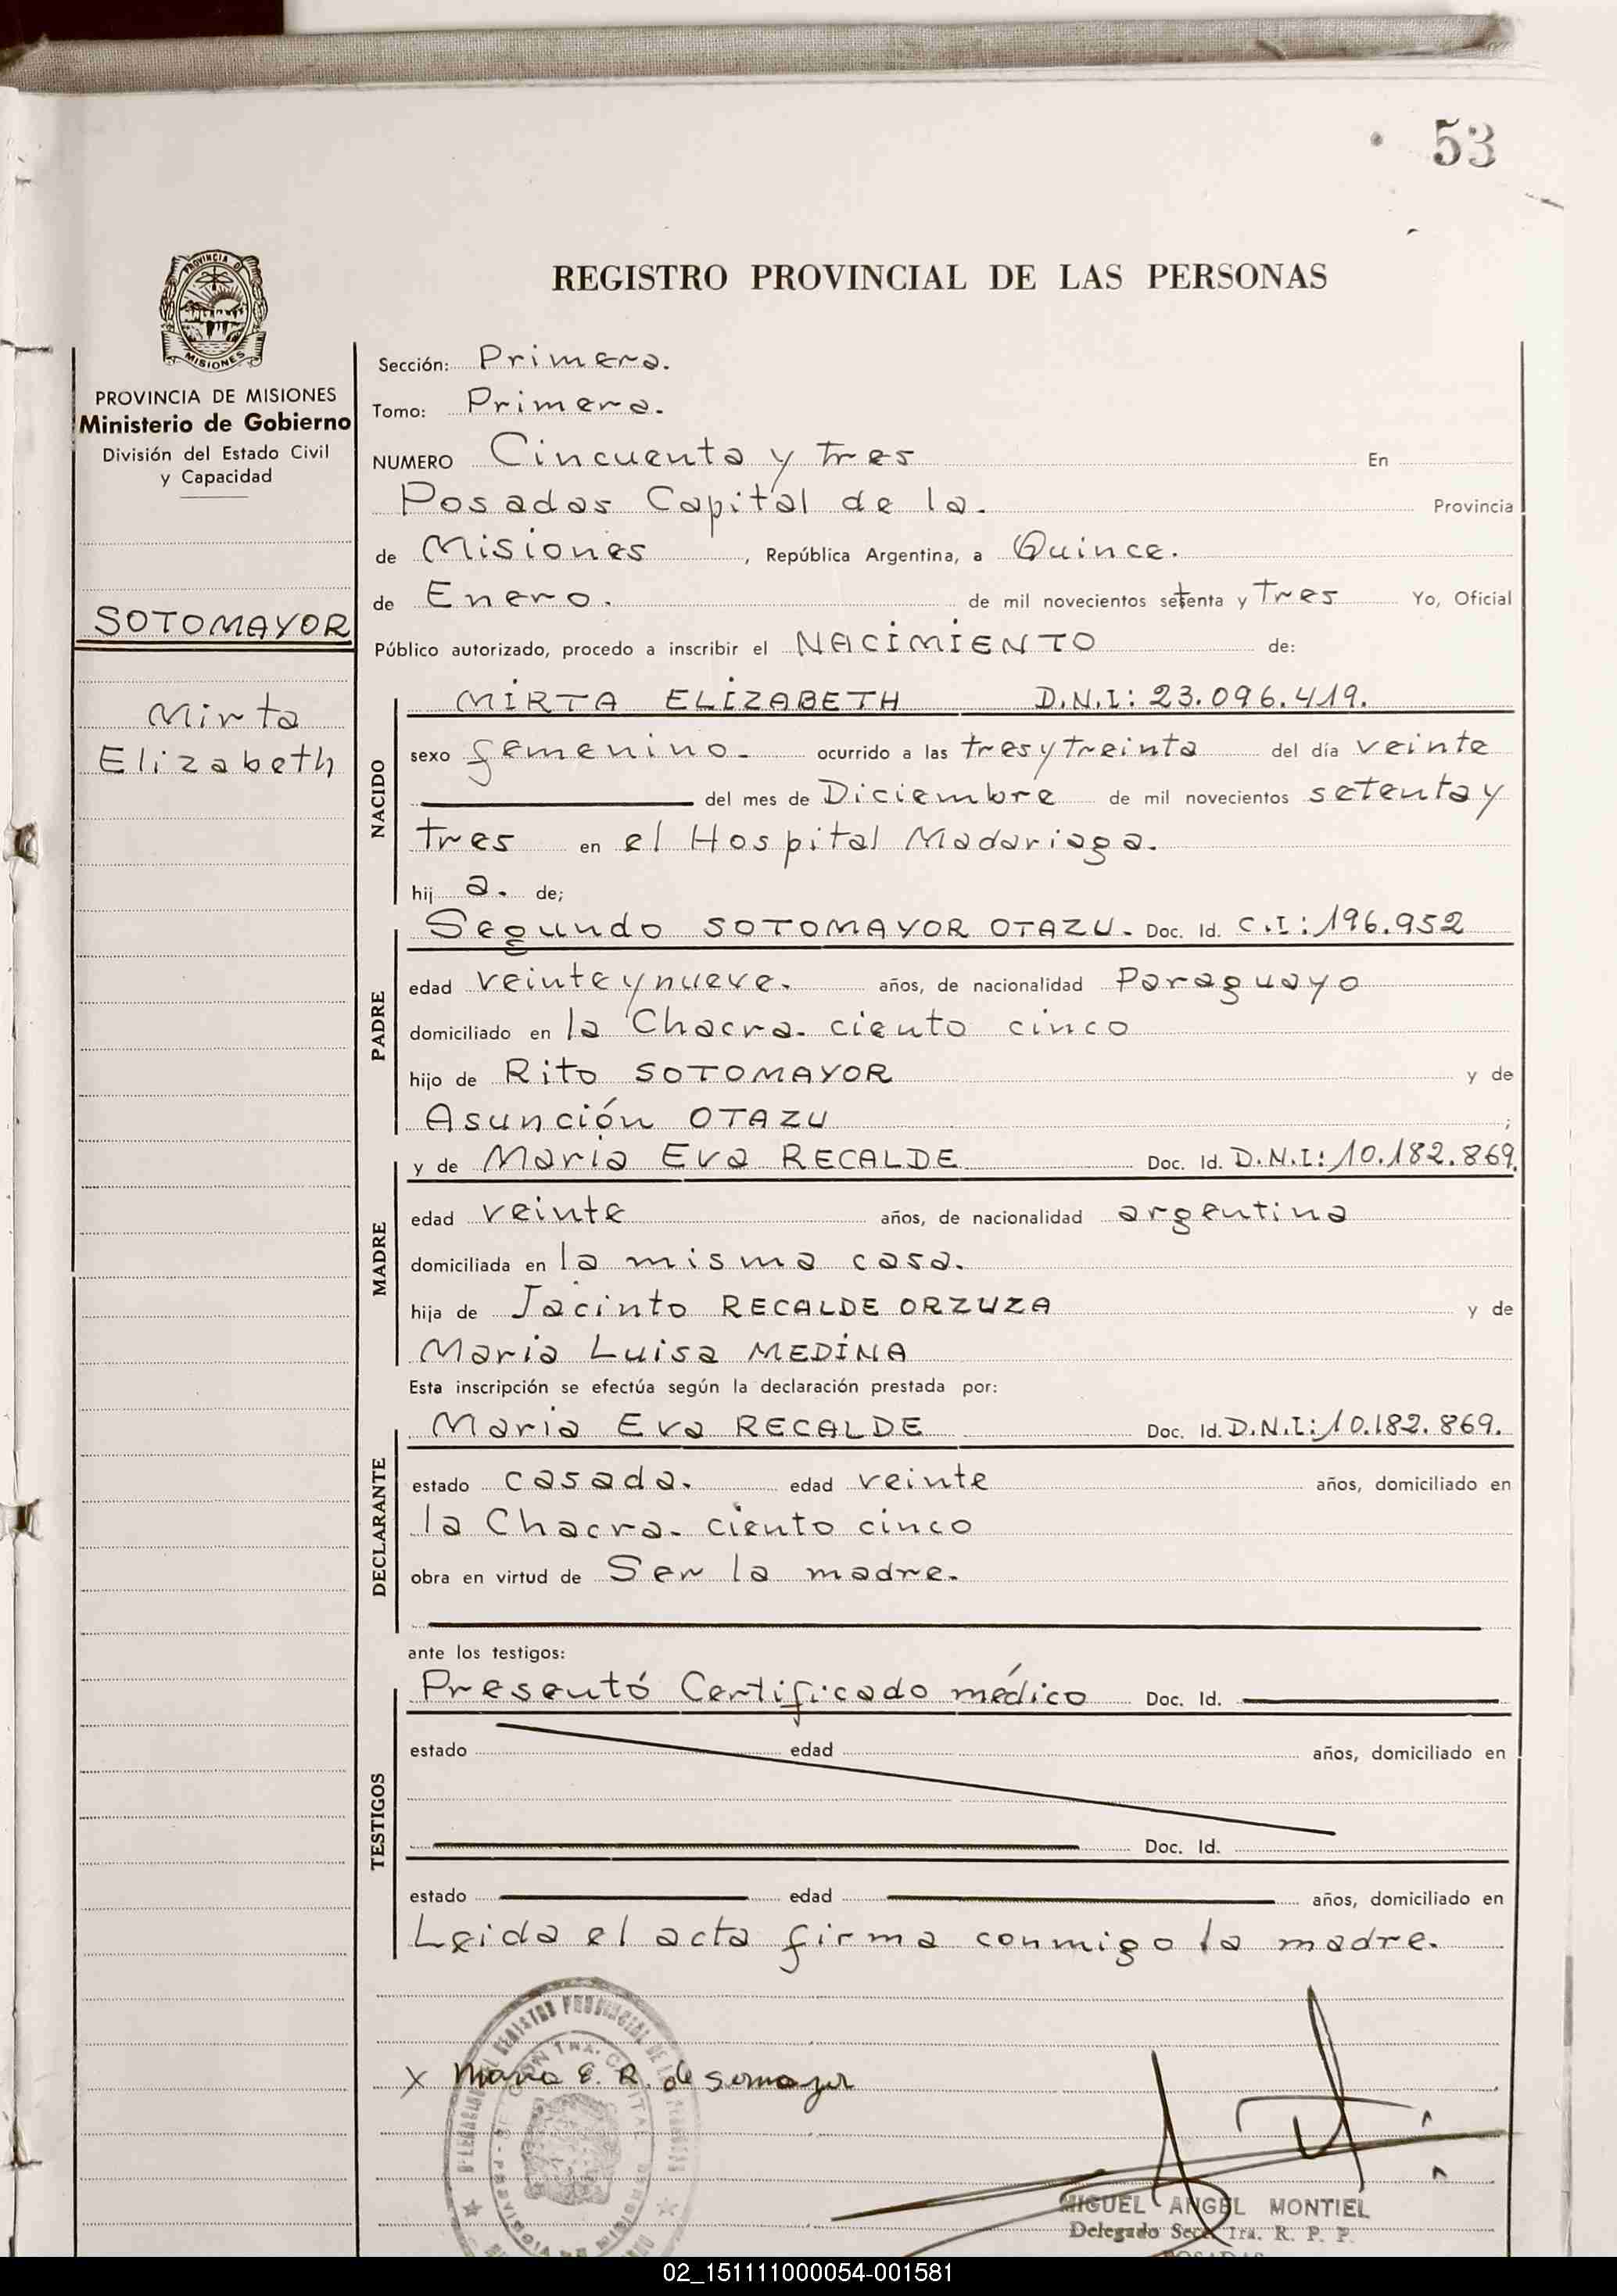 53
REGISTRO PROVINCIAL DE LAS PERSONAS
PROVINCIA DE
MISIONES
PROVINCIA DE MISIONES
Ministerio de Gobierno
División del Estado Civil
y Capacidad
SOTOMAYOR
Mirta
Elizabeth
Sección: Primera.
Tomo: Primero.
NUMERO Cincuenta y tres En
Posadas Capital de la. Provincia
de Misiones, República Argentina, a Quince.
de Enero. de mil novecientos setenta y Tres Yo, Oficial
Público autorizado, procedo a inscribir el NACIMIENTO de:
NACIDO
MIRTA ELIZABETH D.N.I: 23.096.419.
sexo femenino. ocurrido a las tres y treinta del día veinte
del mes de Diciembre de mil novecientos setenta y
tres en el Hospital Madariaga.
hij a. de;
PADRE
Segundo SOTOMAYOR OTAZU. Doc. Id. C.I: 196.952
edad veinte y nueve. años, de nacionalidad Paraguayo
domiciliado en la Chacra. ciento cinco
hijo de Rito SOTOMAYOR y de
Asunción OTAZU ;
MADRE
y de Maria Eva RECALDE Doc. Id. D.N.I: 10.182.869.
edad veinte años, de nacionalidad argentina
domiciliada en la misma casa.
hija de Jacinto RECALDE ORZUZA y de
Maria Luisa MEDINA
Esta inscripción se efectúa según la declaración prestada por:
DECLARANTE
Maria Eva RECALDE Doc. Id. D.N.I: 10.182.869.
estado casada. edad veinte años, domiciliado en
la Chacra. ciento cinco
obra en virtud de Ser la madre.
ante los testigos:
TESTIGOS
Presentó Certificado médico Doc. Id.
estado edad años, domiciliado en
Doc. Id.
estado edad años, domiciliado en
Leida el acta firma conmigo la madre.
REGISTRO PROVINCIAL DE LAS
x Maria E. R. de
MIGUEL ANGEL MONTIEL
Delegado Secc. 1ra. R. P. P.
POSADAS
02_151111000054-001581